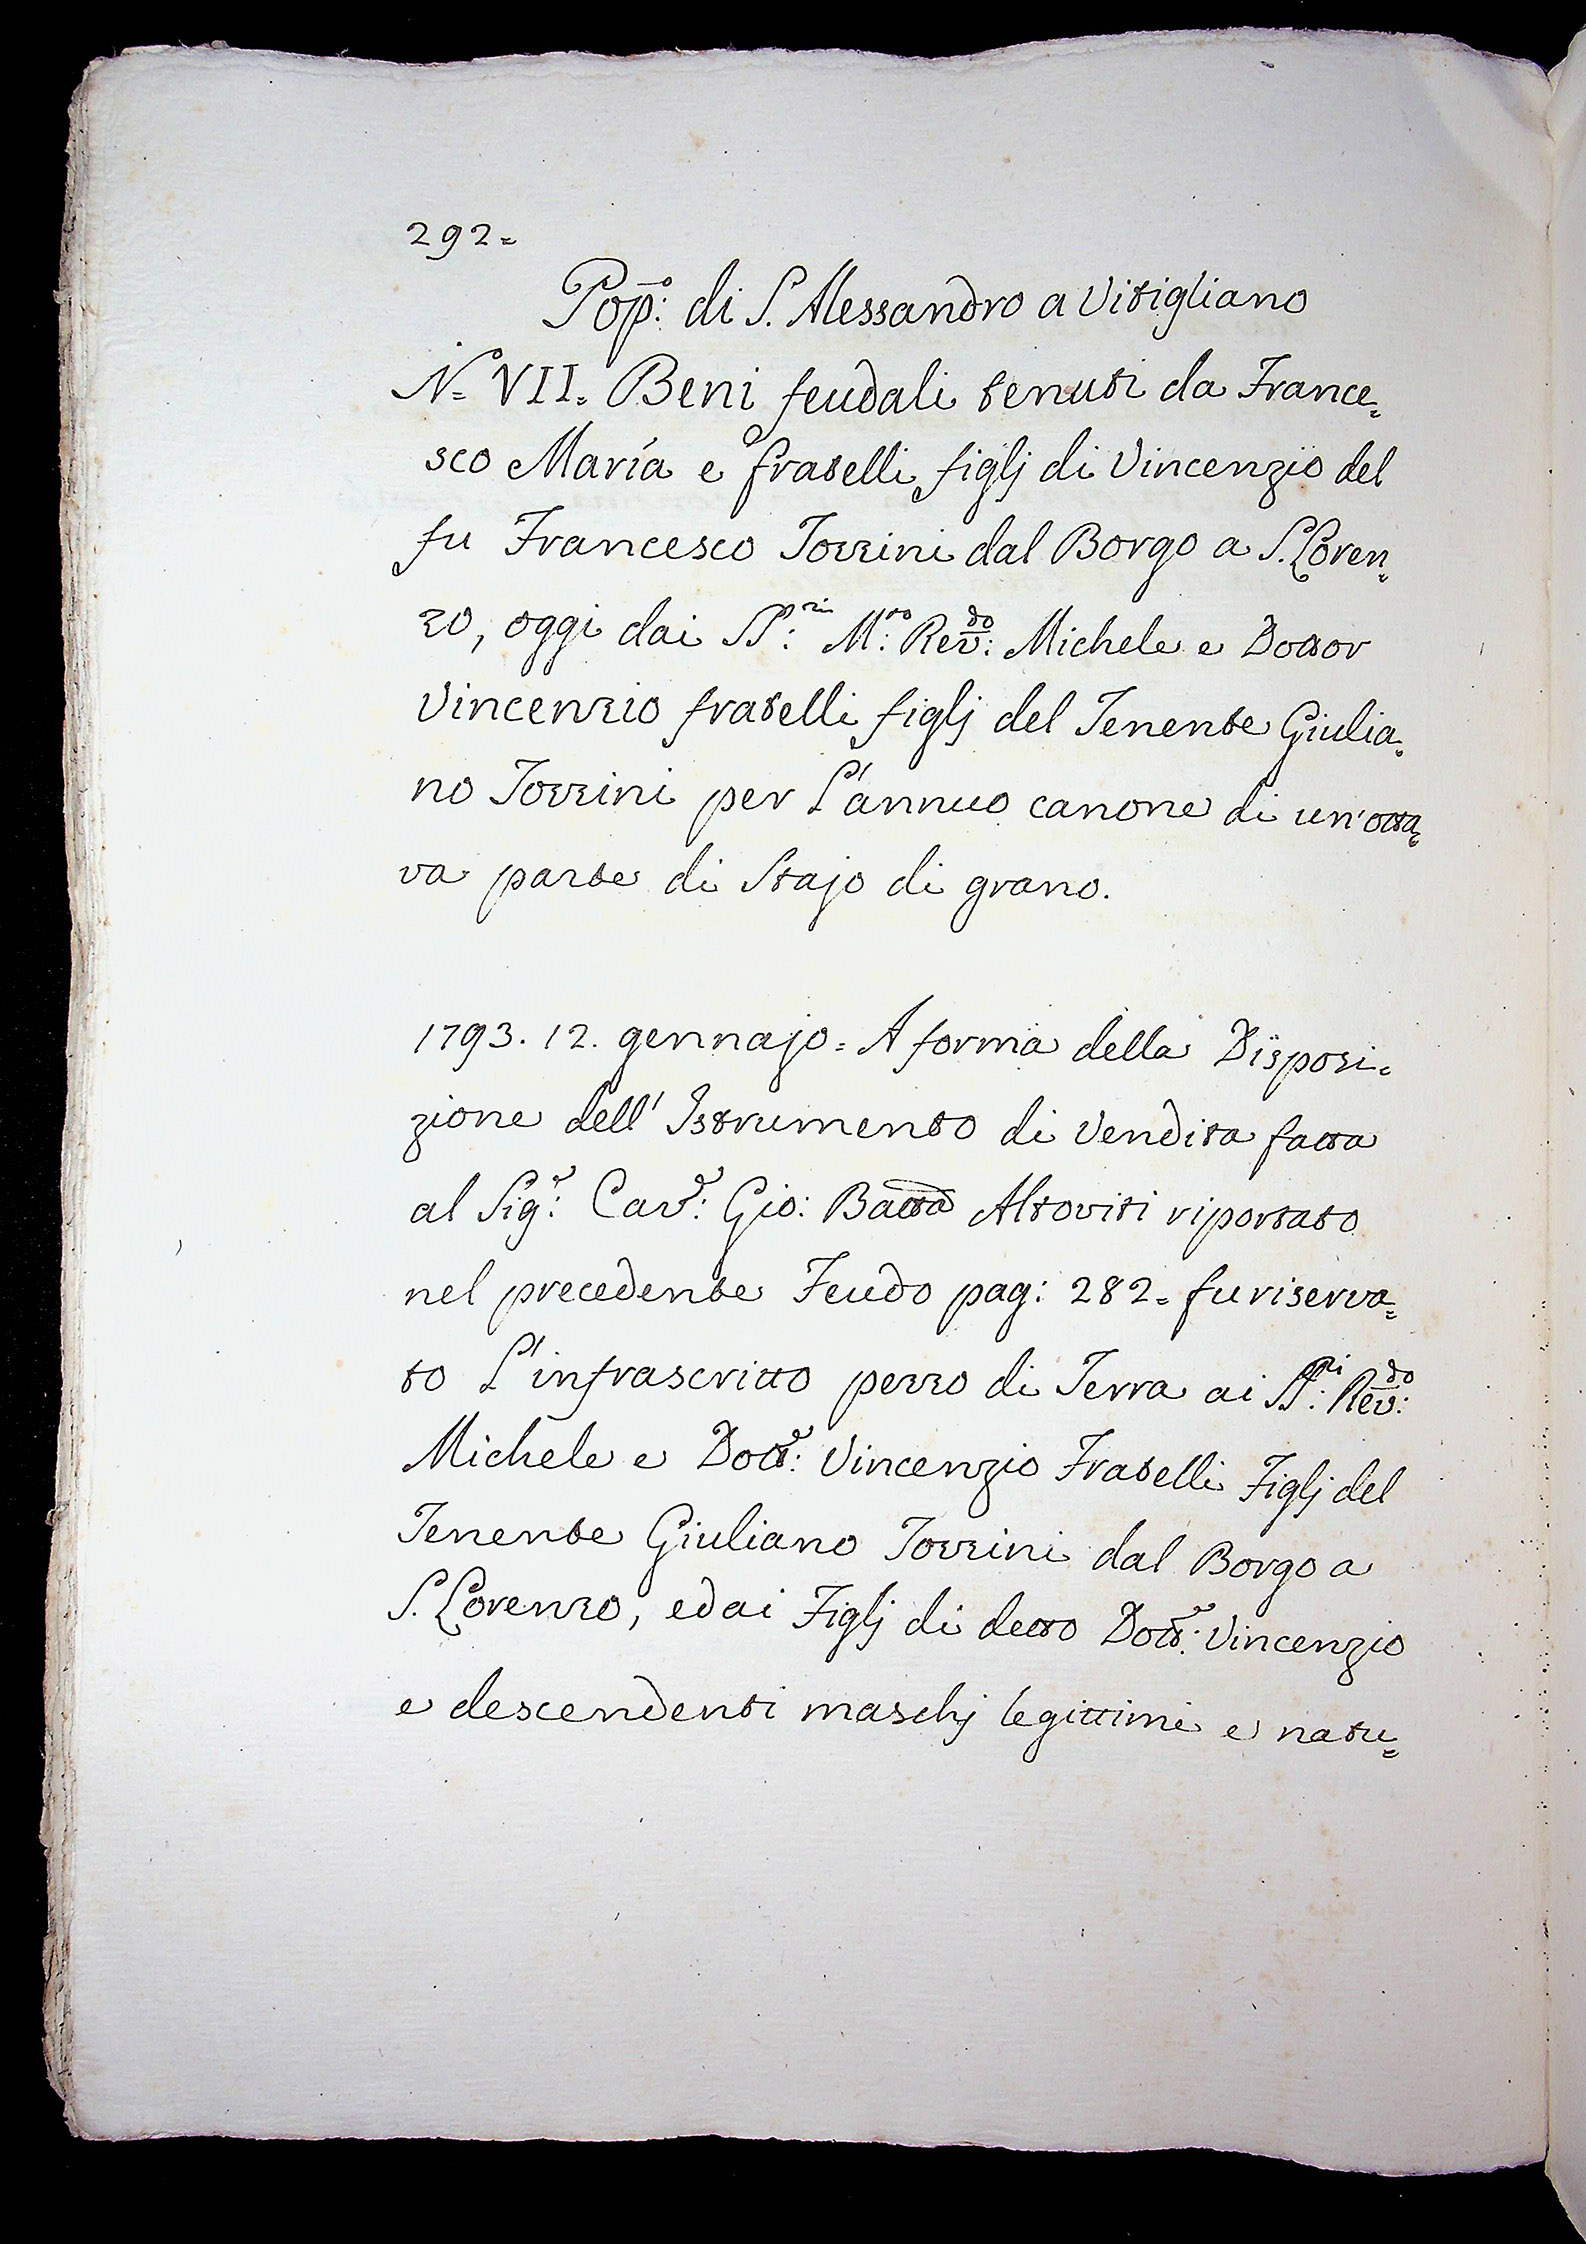 292=
Pop:° di S. Alessandro a Vitigliano
N= VII= Beni feudali tenuti da France=
sco Maria e fratelli figlj di Vincenzio del
fu Francesco Tozzini dal Borgo a S. Loren=
zo, oggi dai SS:ri M:to Rev:do Michele e Dottor
Vincenzio fratelli figlj del Tenente Giulia=
no Tozzini per L'annuo canone di un'otta=
va parte di Stajo di grano.
1793. 12. gennajo= A forma della Disposi=
zione dell'Istrumento di Vendita fatta
al Sig:r Cav:r Gio: Batta Altoviti riportato
nel precedente Feudo pag: 282= fu riserva=
to L'infrascritto pezzo di Terra ai SS:ri Rev:do
Michele e Dott:r Vincenzio Fratelli Figlj del
Tenente Giuliano Tozzini dal Borgo a
S. Lorenzo, edai Figlj di detto Dott:r Vincenzio
e descendenti maschj legittimi e natu=